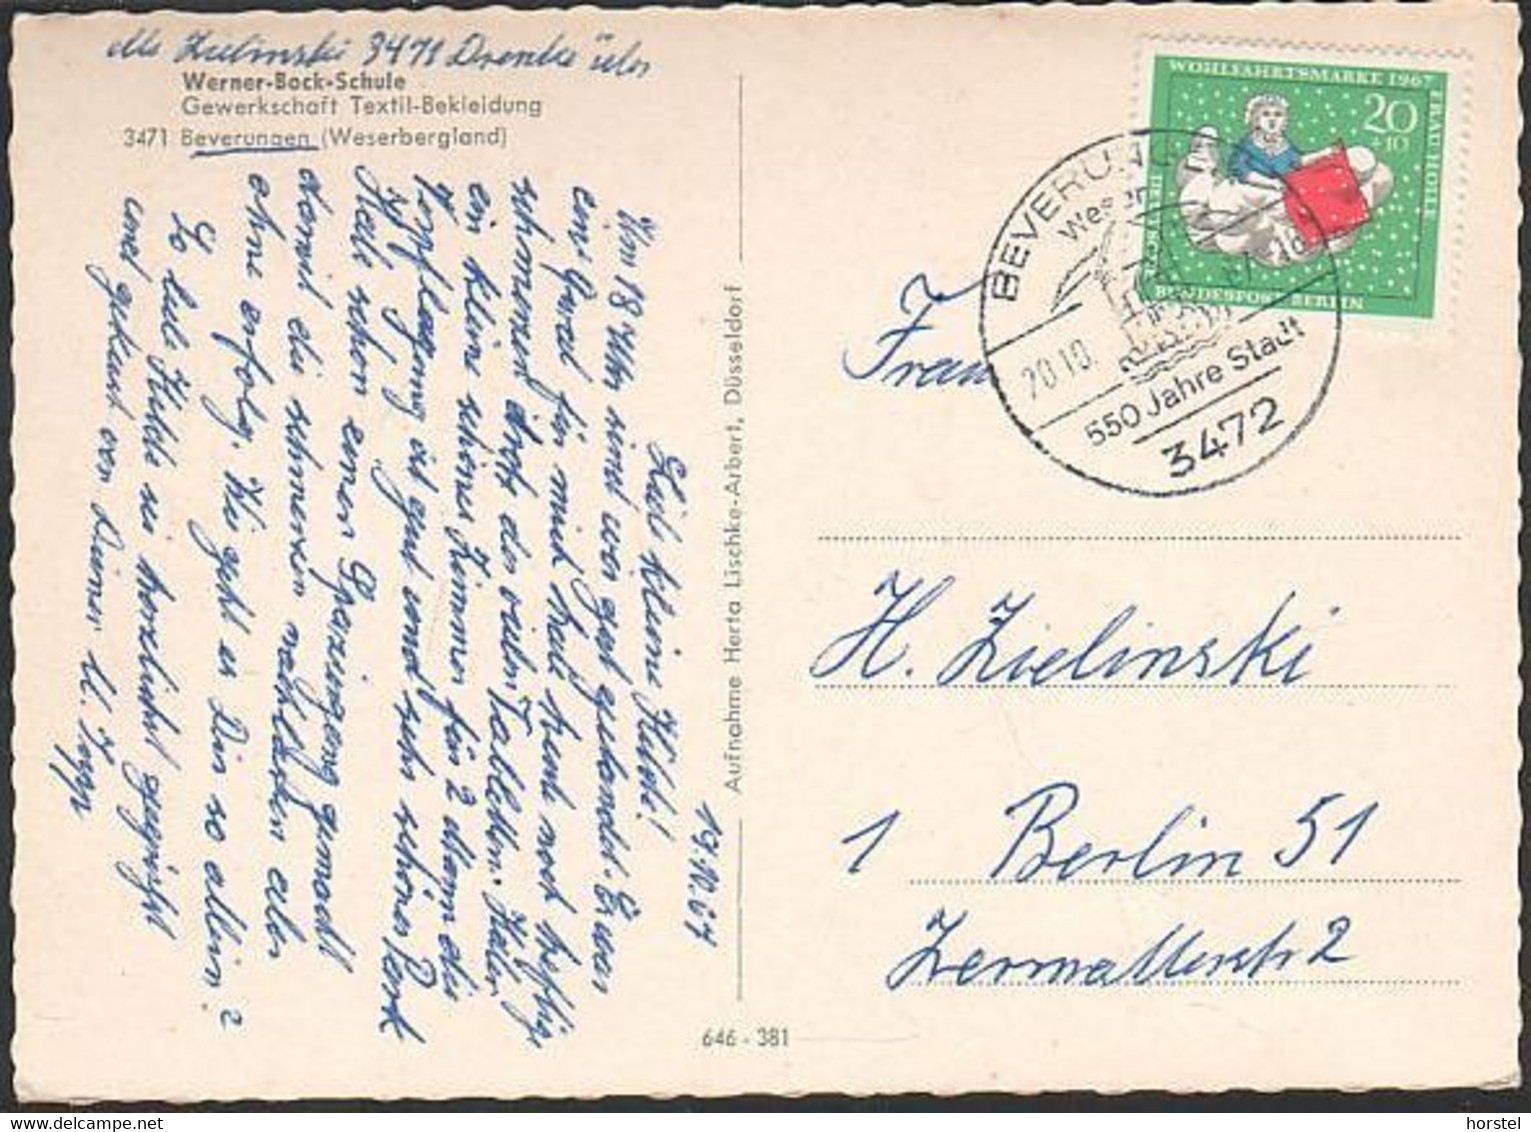 Zielinski 3471 Drenke über
Werner-Bock-Schule
Gewerkschaft Textil-Bekleidung
3471 Beverungen (Weserbergland)
19.10.67
Lieb kleine Hilde!
Um 18 Uhr sind wir gut gelandet. Es war
eine Qual für mich hab heute noch heftige
schmerzen trotz der vielen Tabletten. Haben
ein kleine schönes Zimmer für 2 Mann die
Verpflegung ist gut und sehr schöner Park
Habe schon einen Spaziergang gemacht
damit die schmerzen nachlassen aber
ohne erfolg. Wie geht es Dir so allein?
So liebe Hilde sei herzlichst gegrüßt
und geküsst von Deinem
Aufnahme Herta Lischke-Arbert, Düsseldorf
646 - 381
WOHLFAHRTSMARKE 1967
FRAU HOLLE
20
+10
BRÜDER GRIMM
BUNDESPOST BERLIN
BEVERUNGEN
Weser
20.10.
550 Jahre Stadt
3472
Frau
H. Zielinski
1 Berlin 51
Zermatterstr 2
horstel